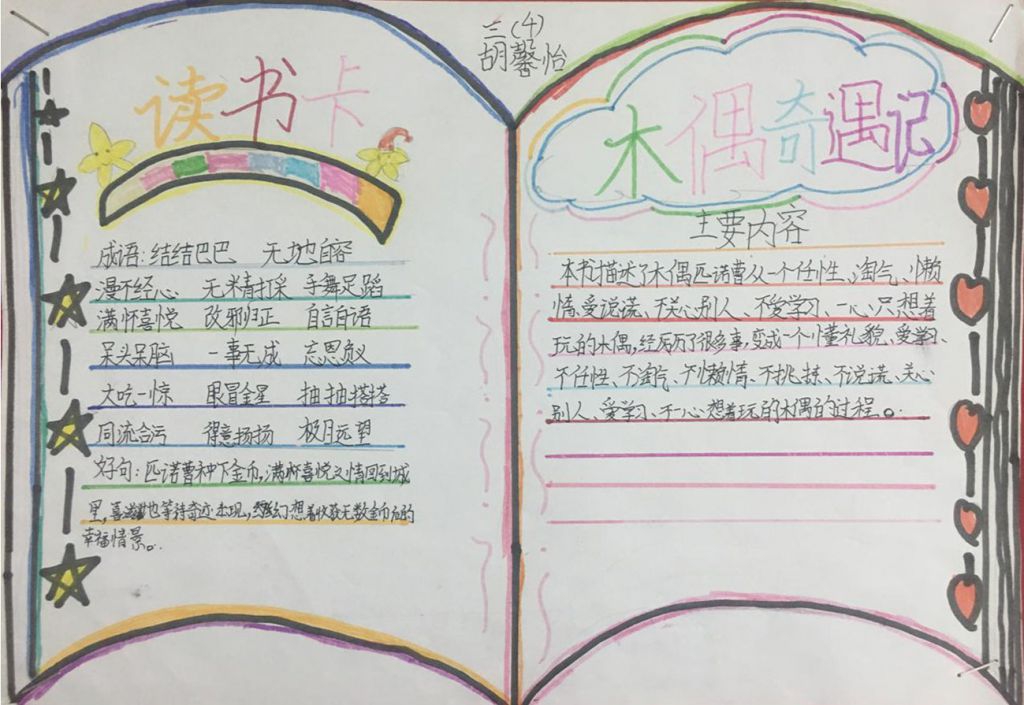 三(4)
胡馨怡
读书卡
成语:结结巴巴 无地自容
漫不经心 无精打采 手舞足蹈
满怀喜悦 改邪归正 自言自语
呆头呆脑 一事无成 忘恩负义
大吃一惊 眼冒金星 抽抽搭搭
同流合污 得意扬扬 极目远望
好句:匹诺曹种下金币,满怀喜悦之情回到城
里,喜滋滋地等待奇迹出现,幻想着收获无数金币后的
幸福情景。
木偶奇遇记
主要内容
本书描述了木偶匹诺曹从一个任性、淘气、懒
惰、爱说谎、不关心别人、不爱学习、一心只想着
玩的木偶,经历了很多事,变成一个懂礼貌、爱学习、
不任性、不淘气、不懒惰、不挑拣、不说谎、关心
别人、爱学习、不一心想着玩的木偶的过程。